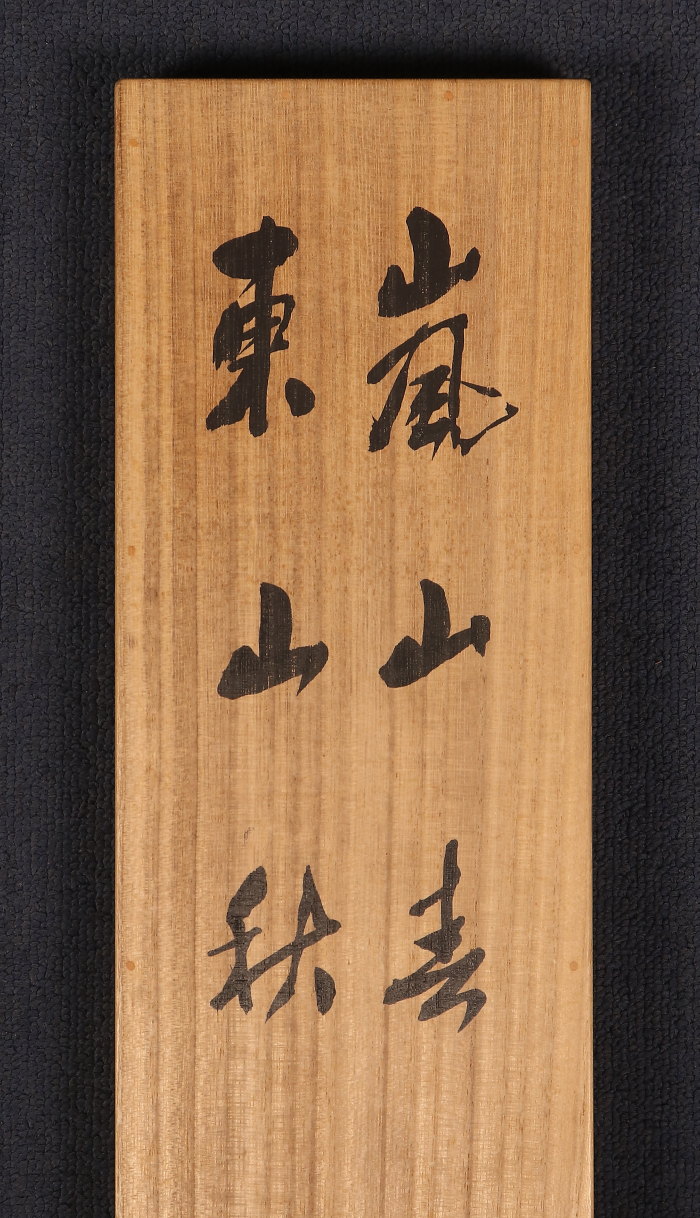 嵐山春
東山秋